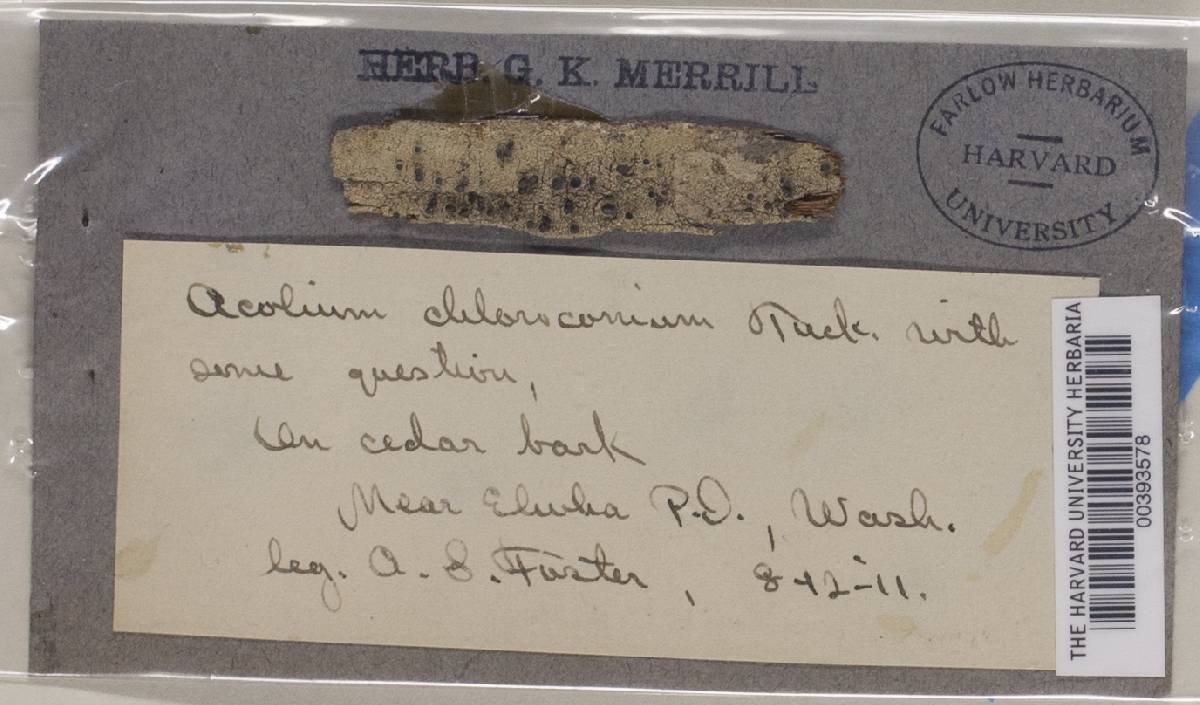 HERB. G. K. MERRILL
FARLOW HERBARIUM
HARVARD
UNIVERSITY
Acolium chloroconium Tuck. with
some question,
On cedar bark
Near Elwha P.O., Wash.
leg. A. S. Foster, 8-12-11.
THE HARVARD UNIVERSITY HERBARIA
00393578